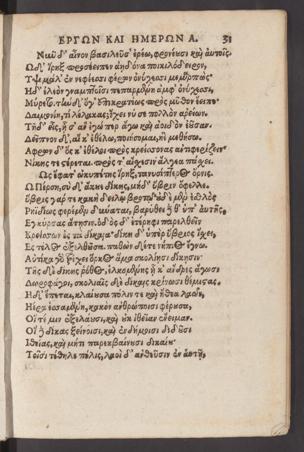 ΕΡΓΩΝ ΚΑΙ ΗΜΕΡΩΝ Α. 31
Νῦν δ' αἶνον βασιλεῦσ' ἐρέω, φρονέουσι καὶ αὐτοῖς.
Ὧδ' ἴρηξ προσέειπεν ἀηδόνα ποικιλόδειρον,
Ὕψι μάλ' ἐν νεφέεσσι φέρων ὀνύχεσσι μεμαρπώς
Ἡ δ' ἐλεὸν γναμπτοῖσι πεπαρμένη ἀμφ' ὀνύχεσσι,
Μύρετο. τὴν δ' ὅγ' ἐπικρατέως πρὸς μῦθον ἔειπε·
Δαιμονίη, τί λέλακας; ἔχει νύ σε πολλὸν ἀρείων.
Τῇδ' εἶς, ᾗ σ' ἂν ἐγώ περ ἄγω καὶ ἀοιδὸν ἐοῦσαν.
Δεῖπνον δ', αἴ κ' ἐθέλω, ποιήσομαι, ἠὲ μεθήσω.
Ἄφρων δ' ὅς κ' ἐθέλοι πρὸς κρείσσονας ἀντιφερίζειν·
Νίκης τε στέρεται. πρός τ' αἴσχεσιν ἄλγεα πάσχει.
Ὣς ἔφατ' ὠκυπέτης ἴρηξ, τανυσίπτερος ὄρνις.
Ὦ Πέρση, σὺ δ' ἄκουε δίκης, μηδ' ὕβριν ὄφελλε.
ὕβρις γάρ τε κακὴ δειλῷ βροτῷ. οὐδὲ μὲν ἐσθλὸς
Ῥηϊδίως φερέμεν δύναται, βαρύθει δέ θ' ὑπ' αὐτῆς,
Ἐγκύρσας ἄτησιν. ὁδὸς δ' ἑτέρηφι παρελθεῖν
Κρείσσων ἐς τὰ δίκαια· δίκη δ' ὑπὲρ ὕβριος ἴσχει,
Ἐς τέλος ἐξελθοῦσα. παθὼν δέ τε νήπιος ἔγνω.
Αὐτίκα γὰρ τρέχει ὅρκος ἅμα σκολιῇσι δίκῃσιν·
Τῆς δὲ δίκης ῥόθος, ἑλκομένης ᾗ κ' ἄνδρες ἄγωσι
Δωροφάγοι, σκολιαῖς δὲ δίκαις κρίνωσι θέμιστας.
Ἡ δ' ἕπεται, κλαίουσα πόλιν τε καὶ ἤθεα λαῶν,
Ἠέρα ἑσσαμένη, κακὸν ἀνθρώποισι φέρουσα,
Οἵ τέ μιν ἐξελάσουσι, καὶ οὐκ ἰθεῖαν ἔνειμαν.
Οἳ δὲ δίκας ξείνοισι, καὶ ἐνδήμοισι διδοῦσι
Ἰθείας, καὶ μήτι παρεκβαίνουσι δικαίου·
Τοῖσι τέθηλε πόλις, λαοὶ δ' ἀνθεῦσιν ἐν αὐτῇ,